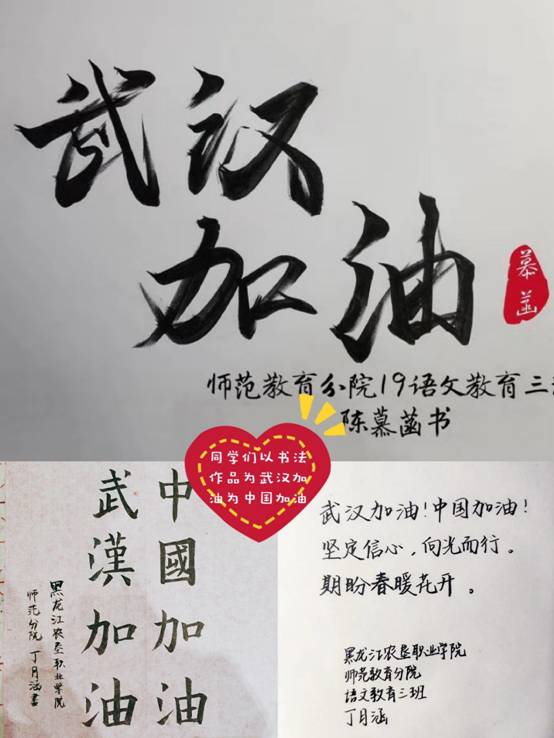 武汉
加油
慕菡
师范教育分院19语文教育三
陈慕菡书
同学们以书法
作品为武汉加
油为中国加油
中國加油
武漢加油
黑龙江农垦职业学院
师范分院 丁月涵書
武汉加油!中国加油!
坚定信心,向光而行。
期盼春暖花开。
黑龙江农垦职业学院
师范教育分院
语文教育三班
丁月涵